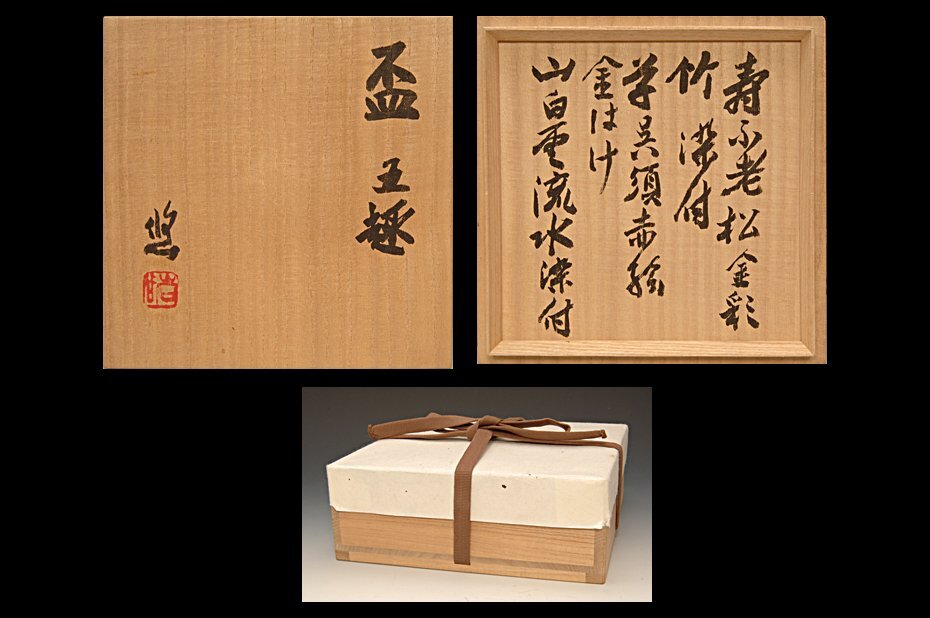 盃 五趣
悠
寿不老松金彩
竹 染付
草呉須赤絵
金はけ
山白雲流水染付